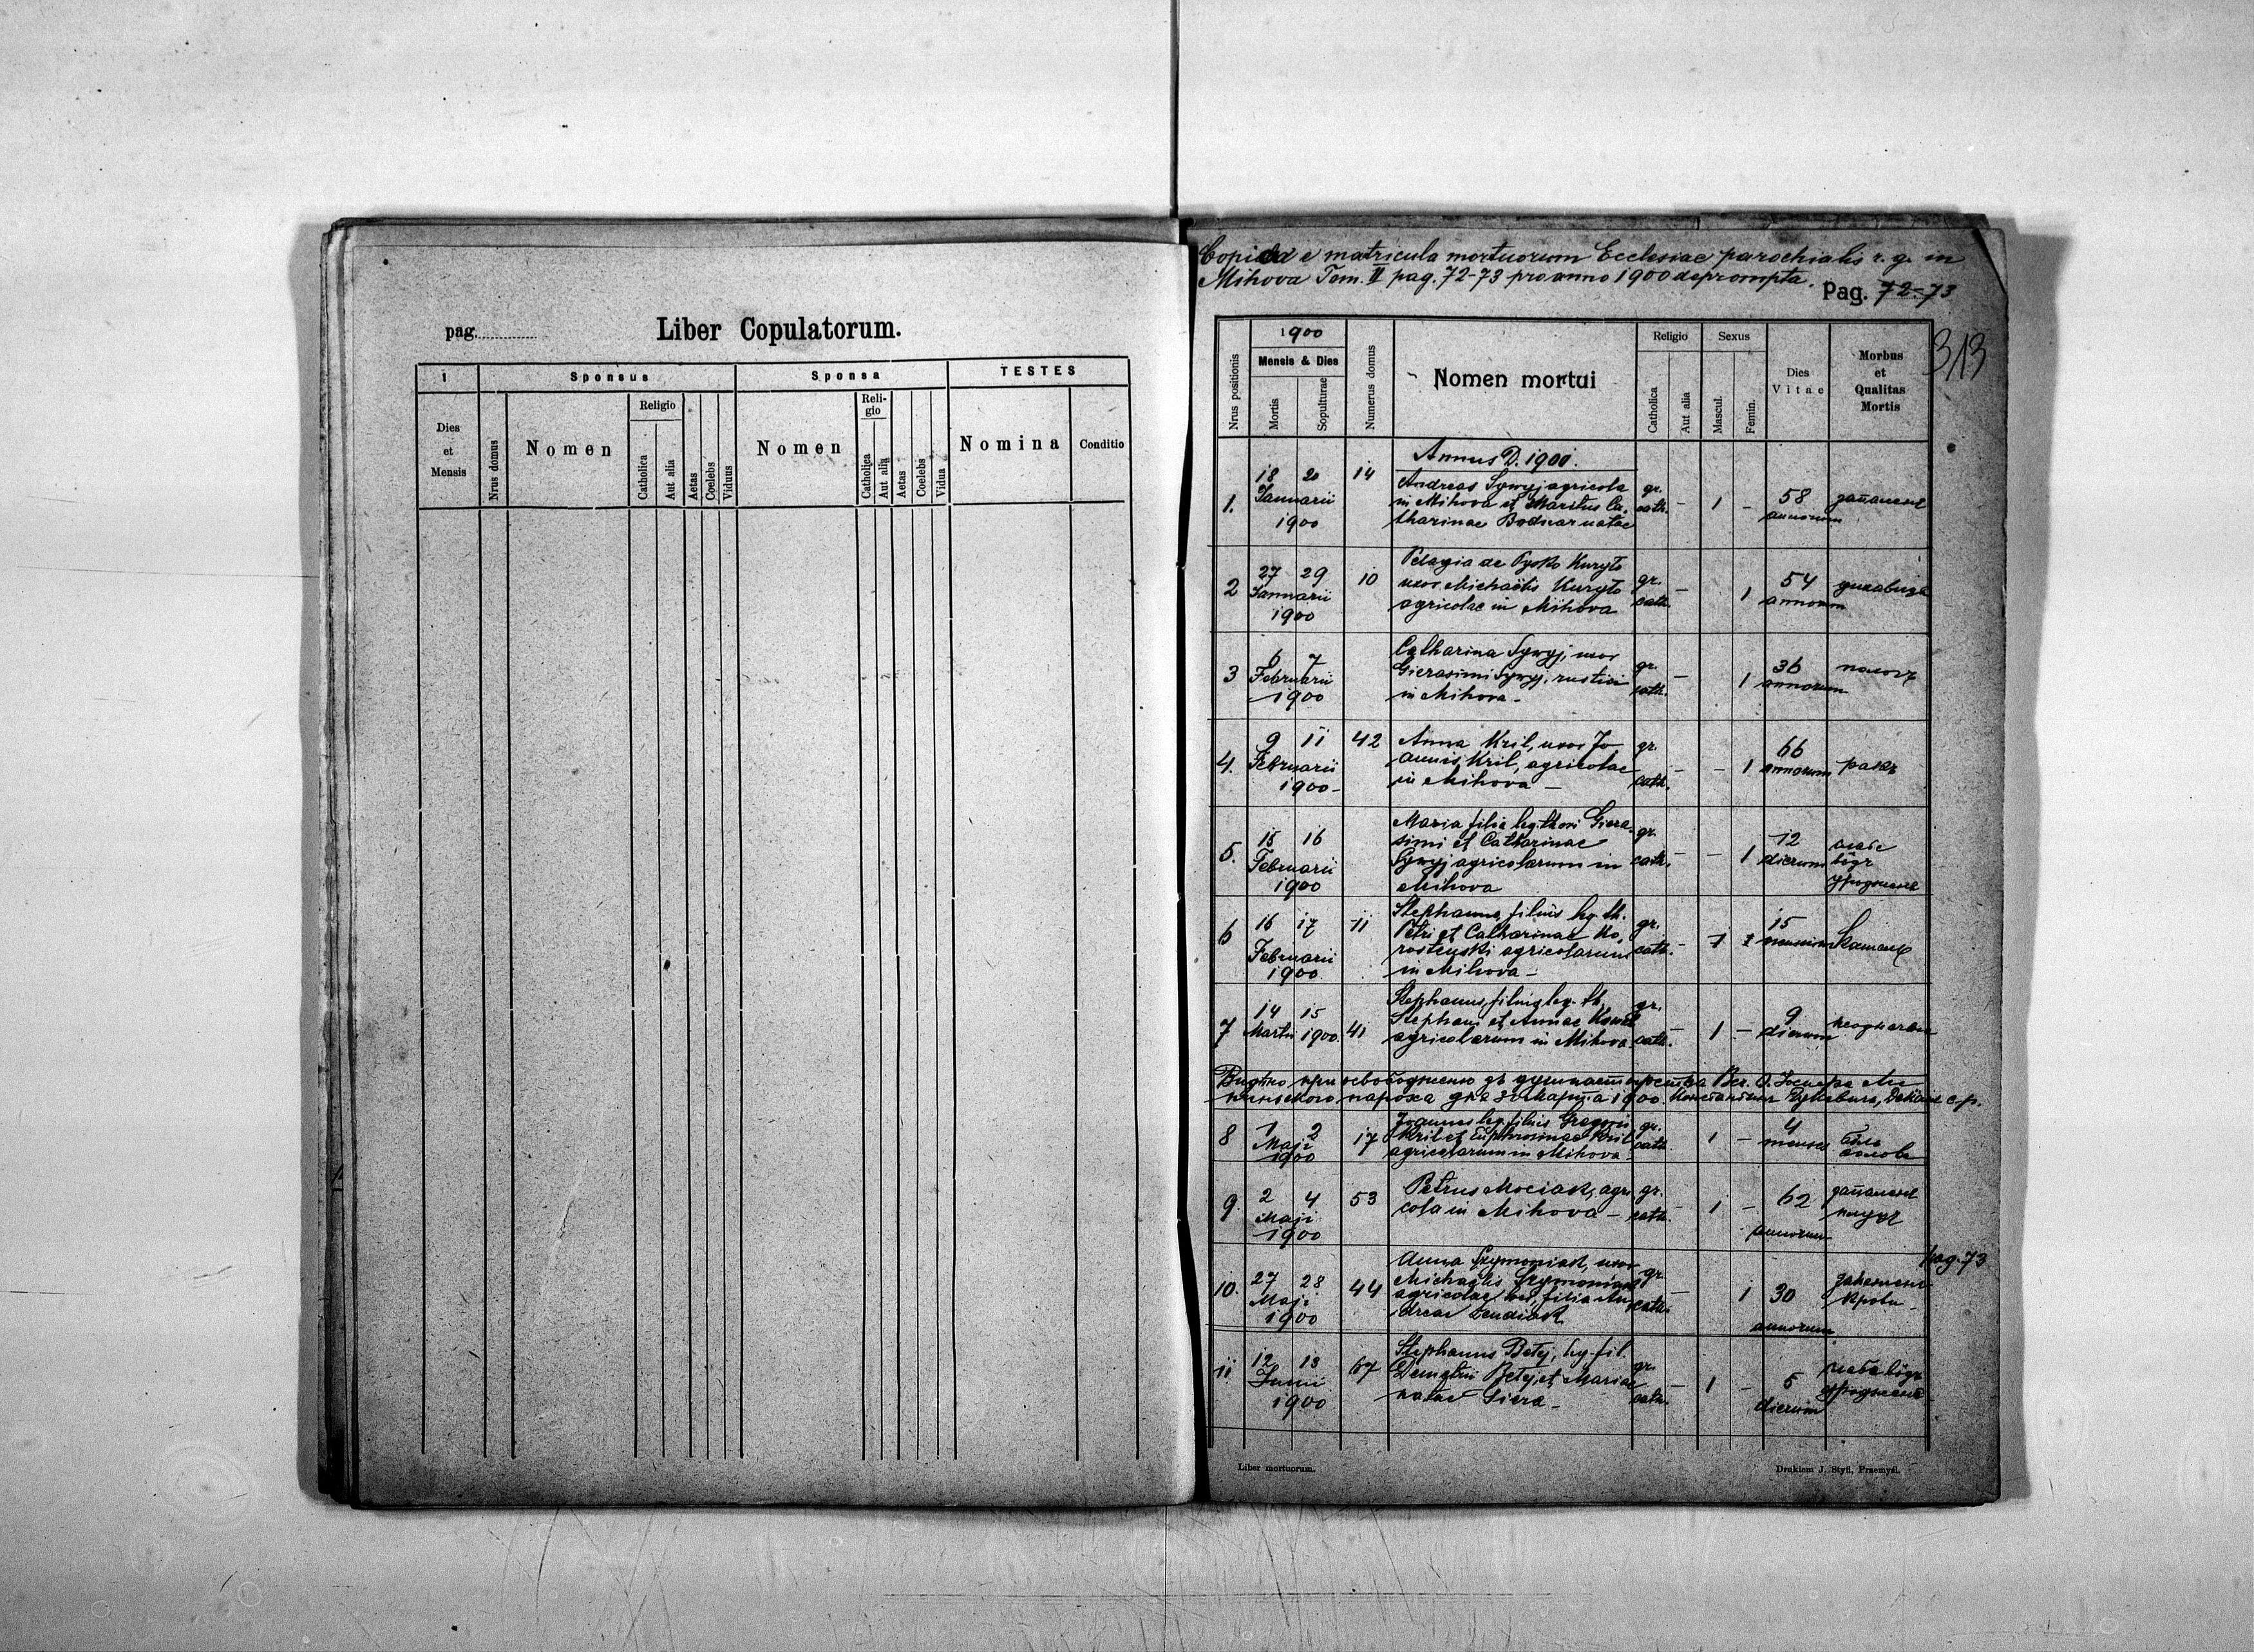 pag.
Liber Copulatorum.
1
Sponsus
Sponsa
TESTES
Dies
et
Mensis
Nrus domus
Nomen
Religio
Catholica
Aut alia
Aetas
Coelebs
Viduus
Nomen
Reli-
gio
Catholica
Aut alia
Aetas
Coelebs
Vidua
Nomina
Conditio
Copia e matricula mortuorum Ecclesiae parochialis r. g. in
Mihova Tom. II pag. 72-73 pro anno 1900 deprompta.
Pag. 72-73
313
Nrus positionis
1900
Mensis & Dies
Mortis
Sepulturae
Numerus domus
Nomen mortui
Religio
Catholica
Aut alia
Sexus
Mascul.
Femin.
Dies
Vitae
Morbus
et
Qualitas
Mortis
Annus D. 1900.
1.
18 20
Januarii
1900
14
Andreas Sywyj agricola
in Mihova et Maritus Ca-
tharinae Bodnar natae
gr.
cath.
-
1
-
58
annorum
запаленє
2
27 29
Januarii
1900
10
Pelagia de Kuryło
uxor Michaëlis Kuryło
agricolae in Mihova
gr.
cath.
-
1
54
annorum
3
6 7
Februarii
1900
Catharina Sywyj, uxor
Gierasimi Sywyj, rustici
in Mihova -
gr.
cath.
-
1
36
annorum
пологъ
4.
9 11
Februarii
1900 -
42
Anna Kril, uxor Jo
annis Kril, agricolae
in Mihova -
gr.
cath.
-
-
1
66
annorum
ракъ
5.
15 16
Februarii
1900
Maria filia leg. thori Giera-
simi et Catharinae
Sywyj agricolarum in
Mihova
gr.
cath.
-
-
1
12
dierum
слабе
вôдъ
уродженя
6
16 17
Februarii
1900.
11
Stephanus filius leg. th.
Petri et Catharinae Ko-
rostenski agricolarum
in Mihova -
gr.
cath.
-
1
1
15
mensium
7
14 15
Martii 1900.
41
Stephanus, filius leg. th.
Stephani et Annae
agricolarum in Mihova
gr.
cath.
-
1
-
9
dierum
Видѣно при
пароха дня 30 Марта 1900.
8
1 2
Maji
1900
17
Joannes leg. filius Gregorii
Kril et Euphrosinae Kril
agricolarum in Mihova -
gr.
cath.
1
-
4
menses
бôль
голови
9
2 4
Maji
1900
53
Petrus Mociak, agri
cola in Mihova -
gr.
cath.
-
1
-
62
annorum
запаленє
pag. 73
10.
27 28
Maji
1900
44
Anna Szymoniak, uxor
Michaëlis Szymoniak
agricolae filia An
dreae
gr.
cath.
-
1
30
annorum
закаженє
крови -
11
12 13
Junii
1900
67
Stephanus Betej, leg. fil.
Demetrii Betej et Mariae
natae Siera -
gr.
cath.
-
1
-
5
dierum
слабе вôдъ
уродженя
Liber mortuorum.
Drukiem J. Styfi, Przemyśl.